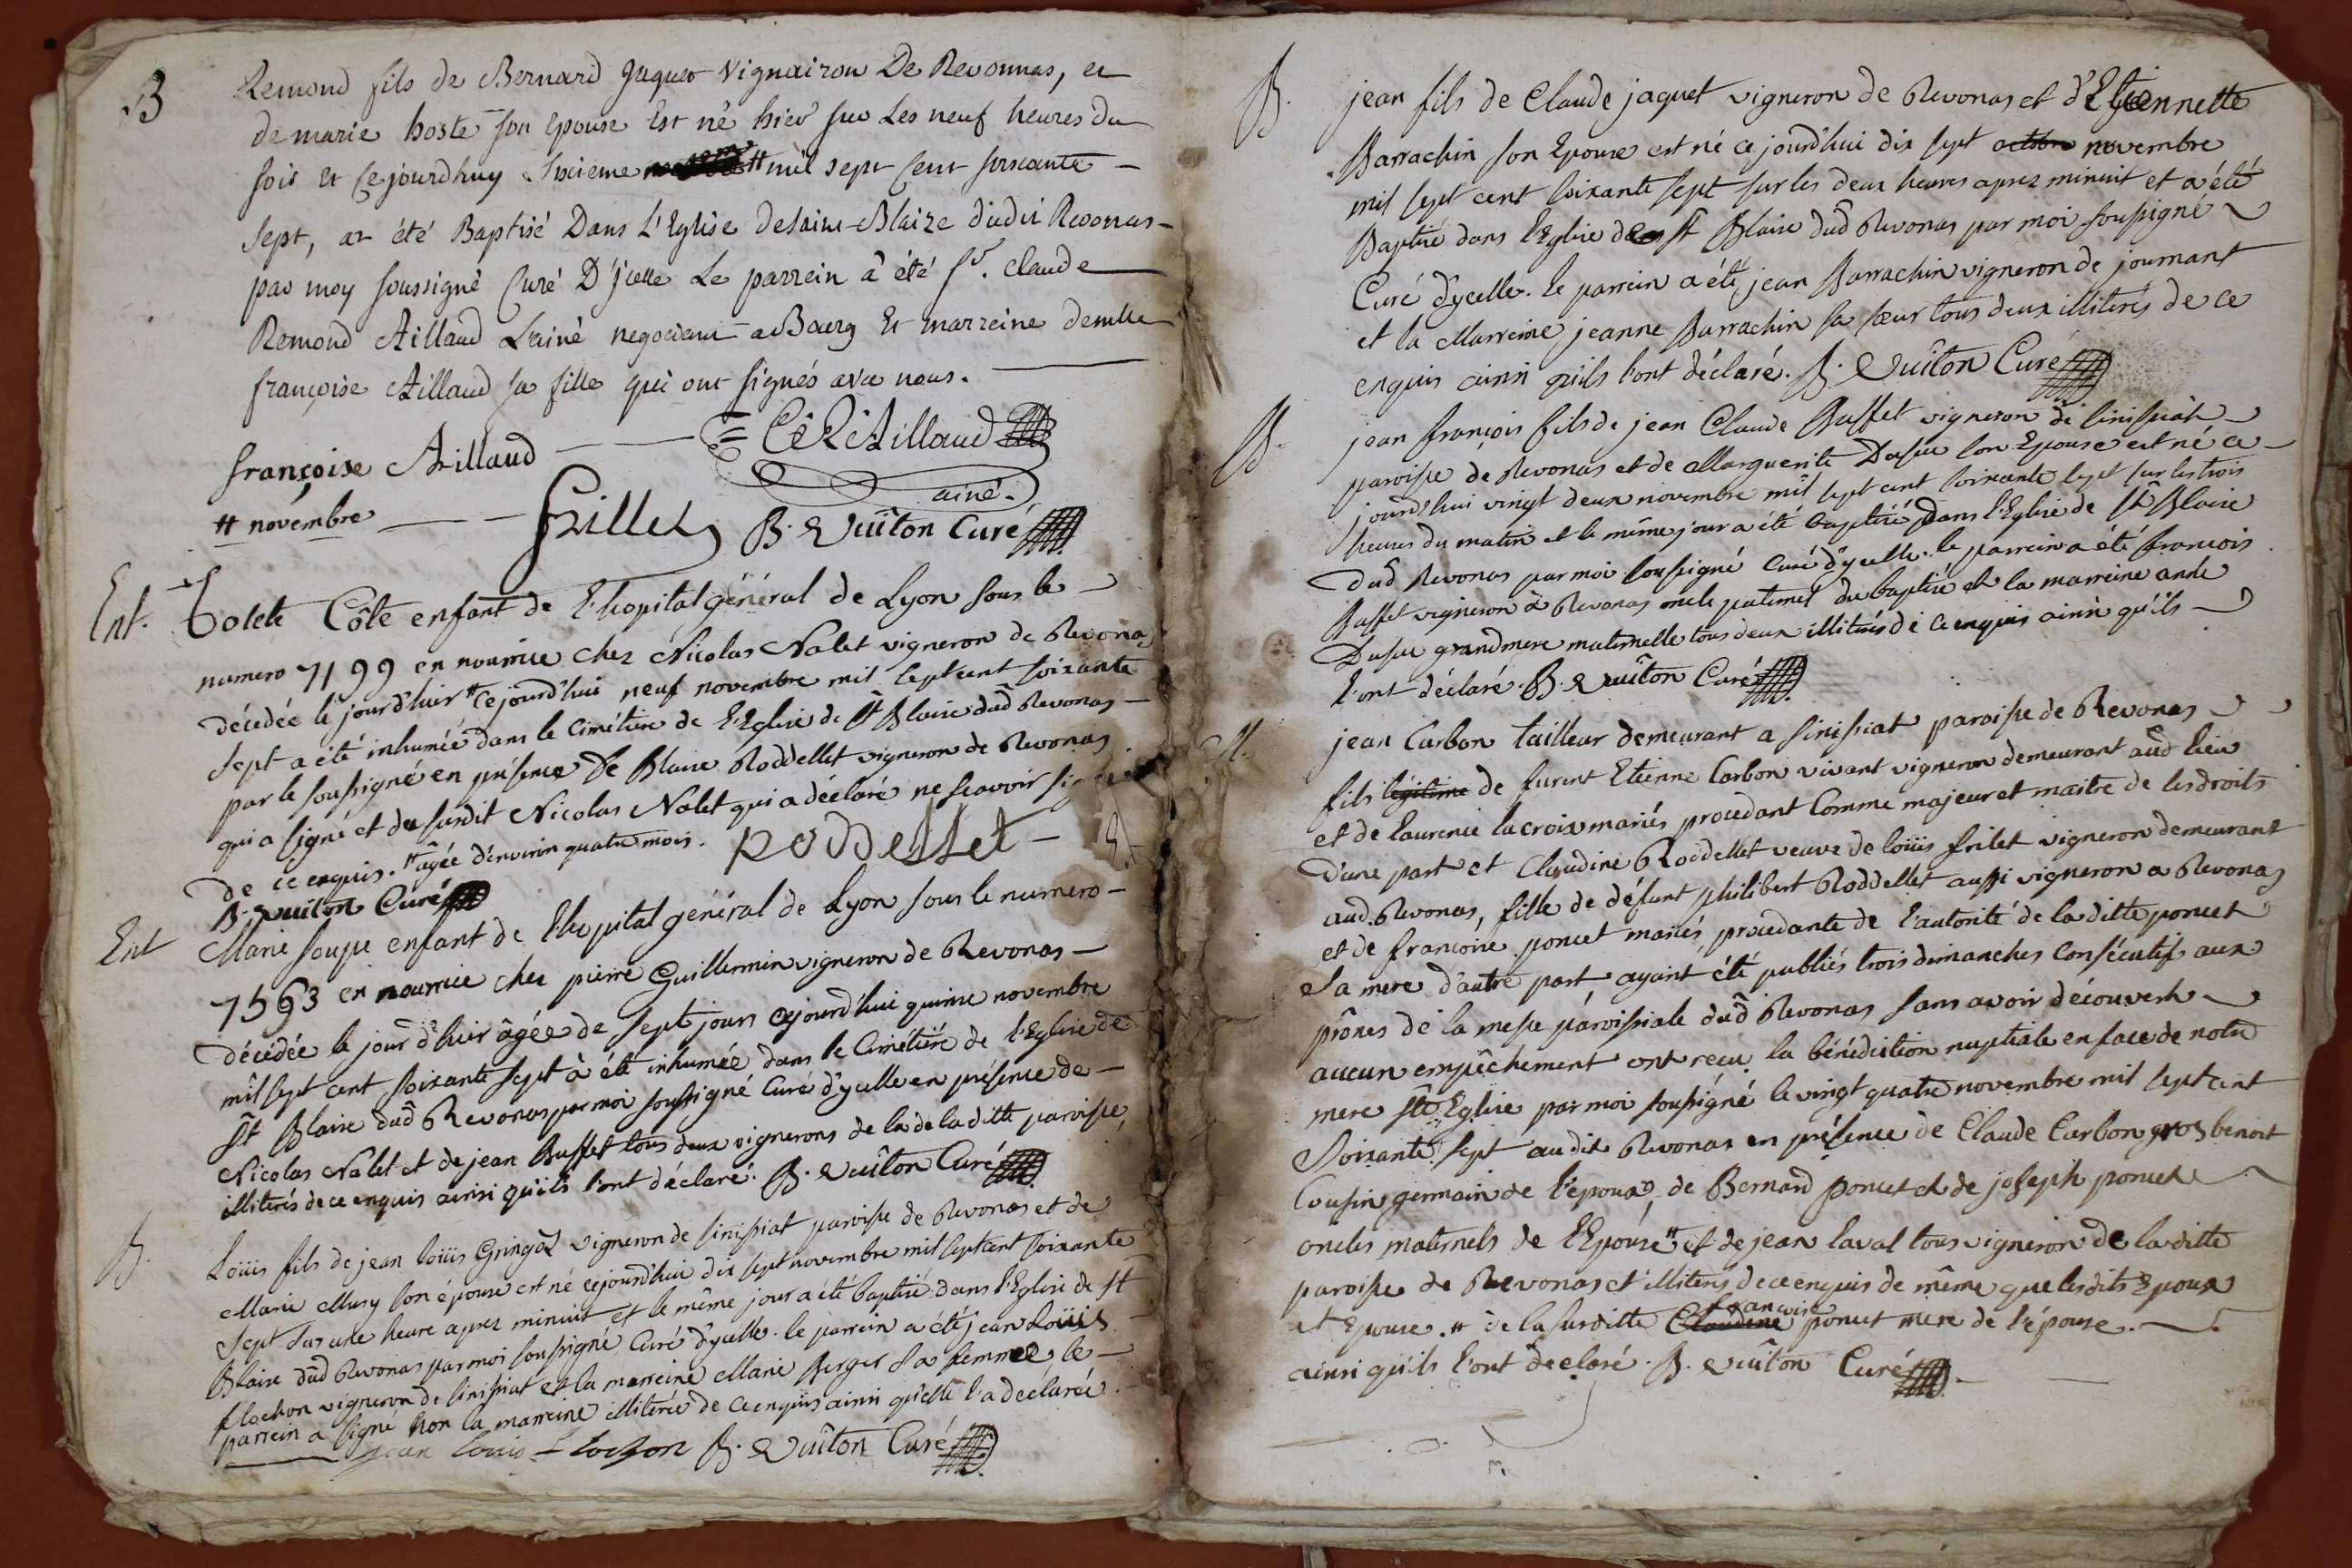 B Remond fils de Bernard Jaquet Vignairon De Revonnas, et
de marie hoste son Epouse Est né hier sur Les neuf heures du
soir et Cejourdhuy Sixieme # mil sept Cent soixante
Sept, at été Baptisé Dans L'Eglise de saint Blaize dudit Revonas
par moy soussigné Curé D'jcelle Le parrein â été sr. Claude
Remond Aillaud L'ainé negociant a Bourg Et marreine demlle
françoise Aillaud sa fille qui ont signés avec nous.
françoise Aillaud C R Aillaud
ainé.
# novembre frillet B. Vuiton Curé
Ent. Côte enfant de l'hopital général de Lyon sous le
numero 7199 en nourrice chez Nicolas Nalet vigneron de Revonas
décedée le jour d'hier # cejourd'hui neuf novembre mil sept cent soixante
sept a été inhumée dans le cimétiere de l'Eglise de st Blaise dud Revonas
par le soussigné en présence de Blaise Roddellet vigneron de Revonas
qui a signé et du susdit Nicolas Nalet qui a déclaré ne scavoir
de ce enquis. # agée d'environ quatre mois. Roddellet
B. Vuiton Curé
Ent Marie soupe enfant de l'hopital général de Lyon sous le numero
7563 en nourrice chez pierre Guillermin vigneron de Revonas
décédée le jour d'hier âgée de sept jours cejourd'hui quinze novembre
mil sept cent soixante sept à été inhumée dans le Cimétiére de l'Eglise de
st Blaise dud Revonas par moi soussigné Curé d'ycelle en présence de
Nicolas Nalet et de jean Buffet tous deux vignerons de la de la ditte paroisse,
illiterés de ce enquis ainsi qu'ils l'ont déclaré. B. Vuiton Curé
B. Loüis fils de jean loüis Gringoz vigneron de sinissiat paroisse de Revonas et de
Marie Mury son épouse est né cejourd'hui dix sept novembre mil sept cent soixante
sept sur une heure apres minuit et le même jour a été baptisé dans l'Eglise de st
Blaise dud Revonas par moi soussigné Curé d'ycelle. le parrein a été jean Loüis
flochon vigneron de sinissiat et la marreine Marie Berger sa femme le
parrein a signé non la marreine illiterée de ce enquis ainsi qu'elle l'a declarée.
jean louis flochon B. Vuiton Curé
B. jean fils de Claude jaquet vigneron de Revonas et d'Etiennette
Barrachin son Epouse est né cejourd'hui dix sept octobre novembre
mil sept cent soixante sept sur les deux heures aprez minuit et a été
Baptisé dans l'Eglise de st Blaise dud Revonas par moi soussigné
Curé d'ycelle. le parrein a été jean Barrachin vigneron de journant
et la Marreine jeanne Barrachin sa sœur tous deux illiterés de ce
enquis ainsi qu'ils l'ont déclaré. B. Vuiton Curé
B. jean françois fils de jean Claude Buffet vigneron de sinissiat
paroisse de Revonas et de Marguerite son Epouse est né ce
jourd'hui vingt deux novembre mil sept cent soixante sept sur les trois
heures du matin et le même jour a été baptisé dans l'Eglise de st Blaise
dud Revonas par moi soussigné Curé d'ycelle. le parrein a été francois
Buffet vigneron à Revonas oncle paternel du baptisé et la marreine
grandmere maternelle tous deux illiterés de ce enquis ainsi qu'ils
l'ont déclaré. B. Vuiton Curé
M. jean Carbon tailleur demeurant a sinissiat paroisse de Revonas
fils légitime de furent Etienne Carbon vivant vigneron demeurant aud lieu
et de laurence lacroix mariés procedant Comme majeur et maitre de ses droits
d'une part et Claudine Roddellet veuve de loüis frilet vigneron demeurant
aud. Revonas, fille de défunt philibert Roddellet aussi vigneron a Revonas
et de francoise poncet mariés, procedante de l'autorité de la ditte poncet
sa mere d'autre part ayant été publiés trois dimanches Consécutifs aux
prônes de la messe paroissiale dud Revonas sans avoir découvert
aucun empêchement ont recu la bénédiction nuptiale en face de notre
mere ste Eglise par moi soussigné le vingt quatre novembre mil sept cent
soixante sept audit Revonas en présence de Claude Carbon gros benoit
Cousin germain de l'époux, de Bernard poncet et de joseph poncet
oncles maternels de l'Epouse # et de jean laval tous vigneron de la ditte
paroisse de Revonas et illiterés de ce enquis de même que lesdits Epoux
et Epouse. # de la susditte Claudine francoise poncet mere de l'épouse.
ainsi qu'ils l'ont declaré. B. Vuiton Curé